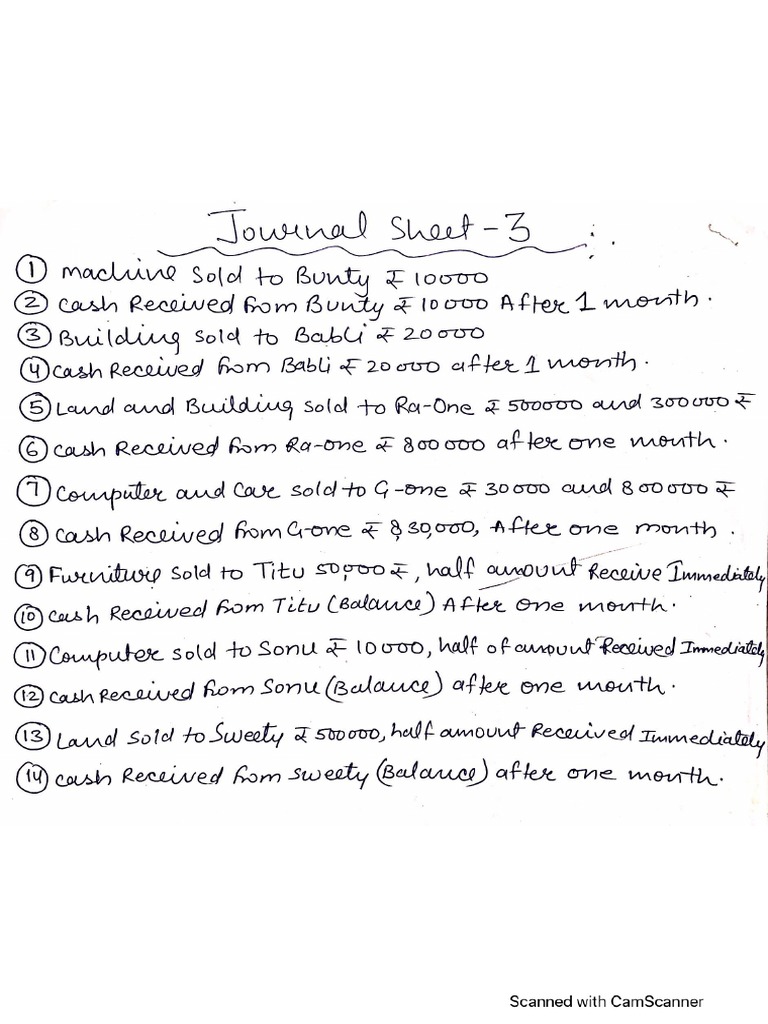 Journal Sheet - 3
① Machine Sold to Bunty ₹ 10000
② Cash Received from Bunty ₹ 10000 After 1 month.
③ Building Sold to Babli ₹ 20000
④ Cash Received from Babli ₹ 20000 after 1 month.
⑤ Land and Building sold to Ra-One ₹ 500000 and 300000 ₹
⑥ Cash Received from Ra-one ₹ 800000 after one month.
⑦ Computer and Car sold to G-one ₹ 30000 and 800000 ₹
⑧ Cash Received from G-one ₹ 830,000, After one month.
⑨ Furniture Sold to Titu 50,000 ₹, half amount Receive Immediately
⑩ Cash Received from Titu (Balance) After one month.
⑪ Computer sold to Sonu ₹ 10000, half of amount Received Immediately
⑫ Cash Received from Sonu (Balance) after one month.
⑬ Land Sold to Sweety ₹ 500000, half amount Received Immediately
⑭ Cash Received from Sweety (Balance) after one month.
Scanned with CamScanner